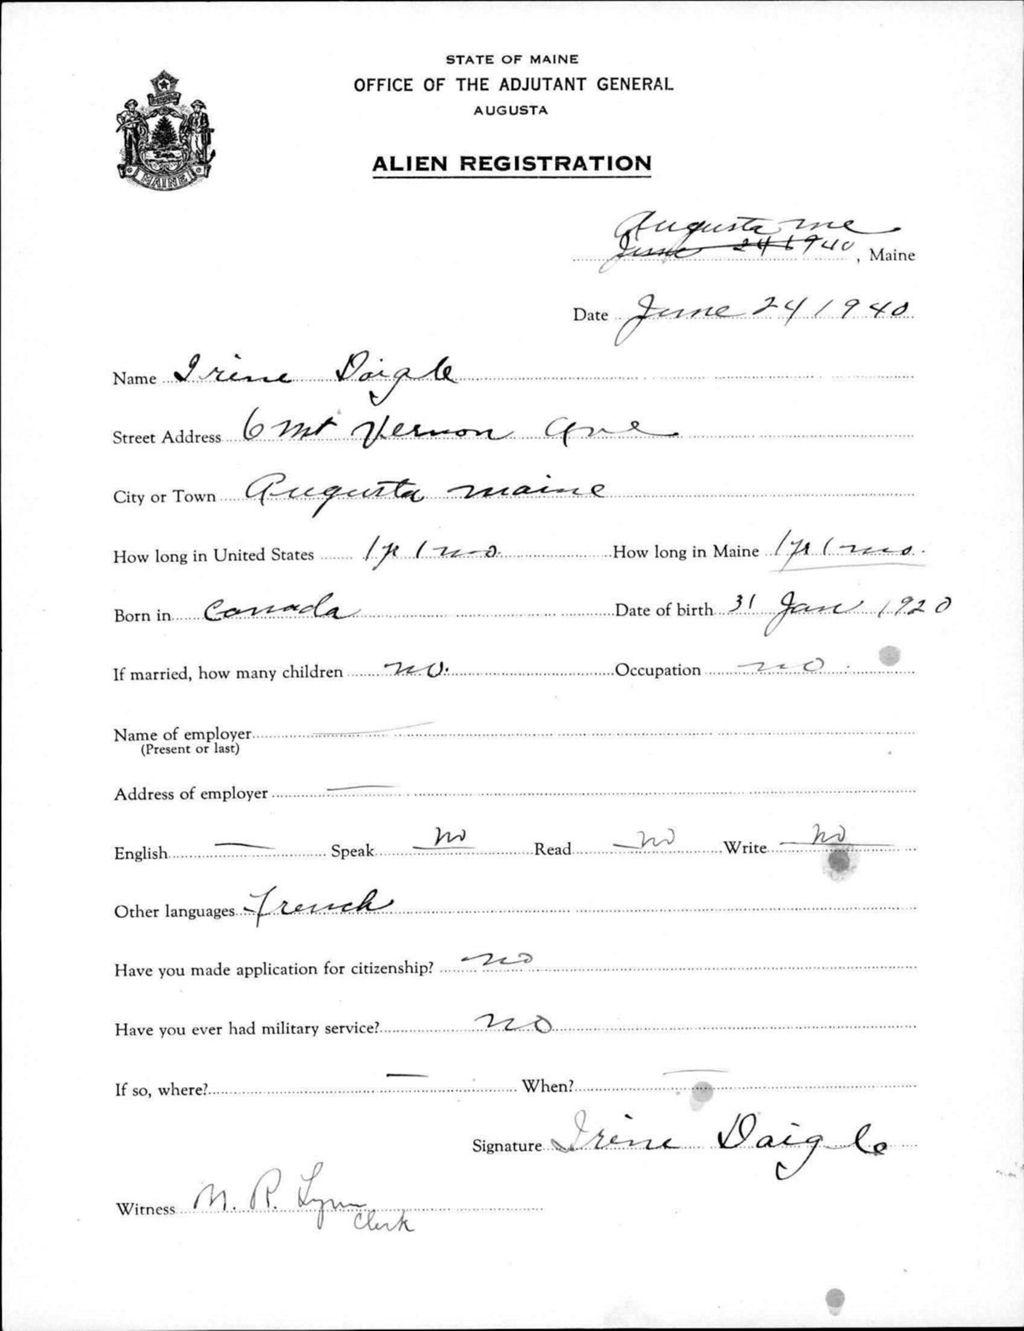 STATE OF MAINE
OFFICE OF THE ADJUTANT GENERAL
AUGUSTA
MAINE
ALIEN REGISTRATION
Augusta me
June 24 1940, Maine
Date June 24 1940
Name Irene Daigle
Street Address 6 Mt Vernon Ave
City or Town Augusta maine
How long in United States 1 yr 1 mo. How long in Maine 1 yr 1 mo.
Born in Canada Date of birth 31 Jan 1920
If married, how many children no. Occupation no
Name of employer —
(Present or last)
Address of employer —
English — Speak no Read no Write no
Other languages french
Have you made application for citizenship? no
Have you ever had military service? no
If so, where? — When? —
Signature Irene Daigle
Witness M. R. Lynn
Clerk